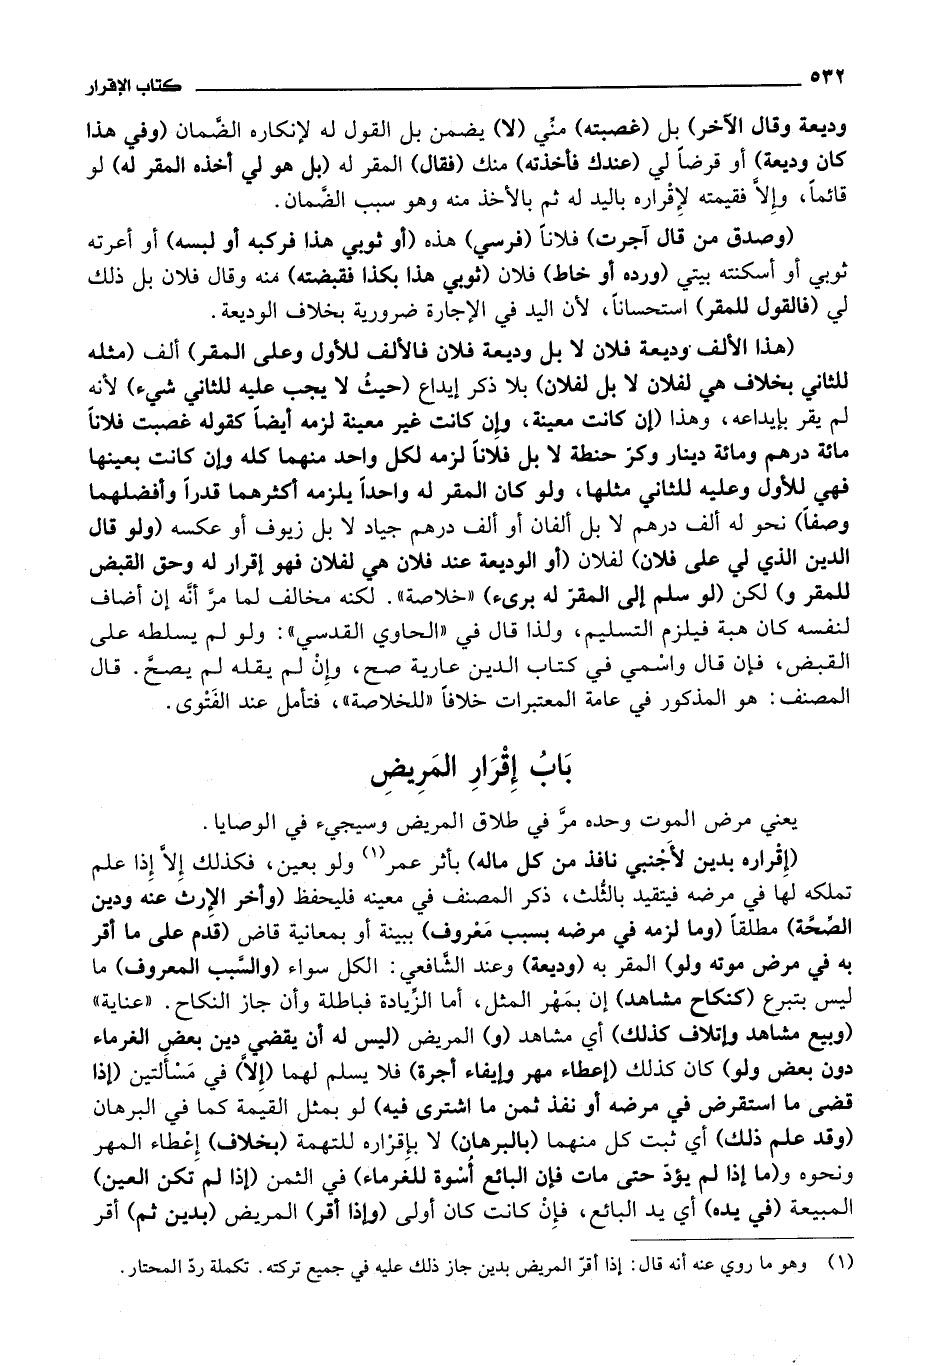 ٥٣٢ كتاب الإقرار
وديعة وقال الآخر) بل (غصبته) مني (لا) يضمن بل القول له لإنكاره الضَّمان (وفي هذا
كان وديعة) أو قرضاً لي (عندك فأخذته) منك (فقال) المقر له (بل هو لي أخذه المقر له) لو
قائماً، وإلاَّ فقيمته لإقْراره باليد له ثم بالأخذ منه وهو سبب الضَّمان.
(وصدق من قال آجرت) فلاناً (فرسي) هذه (أو ثوبي هذا فركبه أو لبسه) أو أعرته
ثوبي أو أسكنته بيتي (ورده أو خاط) فلان (ثوبي هذا بكذا فقبضته) منه وقال فلان بل ذلك
لي (فالقول للمقر) استحساناً، لأن اليد في الإجارة ضرورية بخلاف الوديعة.
(هذا الألف وديعة فلان لا بل وديعة فلان فالألف للأول وعلى المقر) ألف (مثله
للثاني بخلاف هي لفلان لا بل لفلان) بلا ذكر إيداع (حيثُ لا يجب عليه للثاني شيء) لأنه
لم يقر بإيداعه، وهذا (إن كانت معينة، وإن كانت غير معينة لزمه أيضاً كقوله غصبت فلاناً
مائة درهم ومائة دينار وكرّ حنطة لا بل فلاناً لزمه لكل واحد منهما كله وإن كانت بعينها
فهي للأول وعليه للثاني مثلها، ولو كان المقر له واحداً يلزمه أكثرهما قدراً وأفضلهما
وصفاً) نحو له ألف درهم لا بل ألفان أو ألف درهم جياد لا بل زيوف أو عكسه (ولو قال
الدين الذي لي على فلان) لفلان (أو الوديعة عند فلان هي لفلان فهو إقرار له وحق القبض
للمقر و) لكن (لو سلم إلى المقرّ له برىء) «خلاصة». لكنه مخالف لما مرَّ أنَّه إن أضاف
لنفسه كان هبة فيلزم التسليم، ولذا قال في «الحاوي القدسي»: ولو لم يسلطه على
القبض، فإن قال واسْمي في كتاب الدين عارية صح، وإنْ لم يقله لم يصحَّ. قال
المصنف: هو المذكور في عامة المعتبرات خلافاً «للخلاصة»، فتأمل عند الفَتْوى.
بَابُ إِقْرَارِ المَرِيضِ
يعني مرض الموت وحده مرَّ في طلاق المريض وسيجيء في الوصايا.
(إقْراره بدين لأَجْنبي نافذ من كل ماله) بأثر عمر(١) ولو بعين، فكذلك إلاَّ إذا علم
تملكه لها في مرضه فيتقيد بالثُّلث، ذكر المصنف في معينه فليحفظ (وأخر الإرث عنه ودين
الصِّحَّة) مطلقاً (وما لزمه في مرضه بسبب مَعْروف) ببينة أو بمعانية قاض (قدم على ما أقر
به في مرض موته ولو) المقر به (وديعة) وعند الشَّافعي: الكل سواء (والسَّبب المعروف) ما
ليس بتبرع (كنكاح مشاهد) إن بمَهْر المثل، أما الزِّيادة فباطلة وأن جاز النكاح. «عناية»
(وبيع مشاهد وإتلاف كذلك) أي مشاهد (و) المريض (ليس له أن يقضي دين بعض الغرماء
دون بعض ولو) كان كذلك (إعطاء مهر وإيفاء أجرة) فلا يسلم لهما (إلاَّ) في مَسْألتين (إذا
قضى ما استقرض في مرضه أو نفذ ثمن ما اشترى فيه) لو بمثل القيمة كما في البرهان
(وقد علم ذلك) أي ثبت كل منهما (بالبرهان) لا بإقْراره للتهمة (بخلاف) إعْطاء المهر
ونحوه و(ما إذا لم يؤدّ حتى مات فإن البائع أُسْوة للغرماء) في الثمن (إذا لم تكن العين)
المبيعة (في يده) أي يد البائع، فإنْ كانت كان أولى (وإذا أقر) المريض (بدين ثم) أقر
(١) وهو ما روي عنه أنه قال: إذا أقرّ المريض بدين جاز ذلك عليه في جميع تركته. تكملة ردّ المحتار.